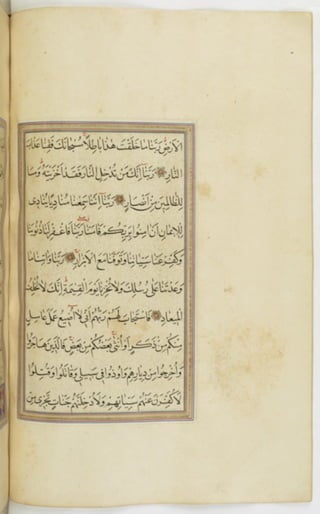 الْاَرْضِ رَبَّنَا مَا خَلَقْتَ هٰذَا بَاطِلًا سُبْحَانَكَ فَقِنَا عَذَابَ
النَّارِ رَبَّنَا اِنَّكَ مَنْ تُدْخِلِ النَّارَ فَقَدْ اَخْزَيْتَهُ وَمَا
لِلظَّالِمِينَ مِنْ اَنْصَارٍ رَبَّنَا اِنَّنَا سَمِعْنَا مُنَادِيًا يُنَادِى
لِلْاِيمَانِ اَنْ اٰمِنُوا بِرَبِّكُمْ فَاٰمَنَّا رَبَّنَا فَاغْفِرْ لَنَا ذُنُوبَنَا
وَكَفِّرْ عَنَّا سَيِّاٰتِنَا وَتَوَفَّنَا مَعَ الْاَبْرَارِ رَبَّنَا وَاٰتِنَا مَا
وَعَدْتَنَا عَلٰى رُسُلِكَ وَلَا تُخْزِنَا يَوْمَ الْقِيٰمَةِ اِنَّكَ لَا تُخْلِفُ
الْمِيعَادَ فَاسْتَجَابَ لَهُمْ رَبُّهُمْ اَنِّى لَا اُضِيعُ عَمَلَ عَامِلٍ
مِنْكُمْ مِنْ ذَكَرٍ اَوْ اُنْثٰى بَعْضُكُمْ مِنْ بَعْضٍ فَالَّذِينَ هَاجَرُوا
وَاُخْرِجُوا مِنْ دِيَارِهِمْ وَاُوذُوا فِى سَبِيلِى وَقَاتَلُوا وَقُتِلُوا
لَاُكَفِّرَنَّ عَنْهُمْ سَيِّاٰتِهِمْ وَلَاُدْخِلَنَّهُمْ جَنَّاتٍ تَجْرِى مِنْ